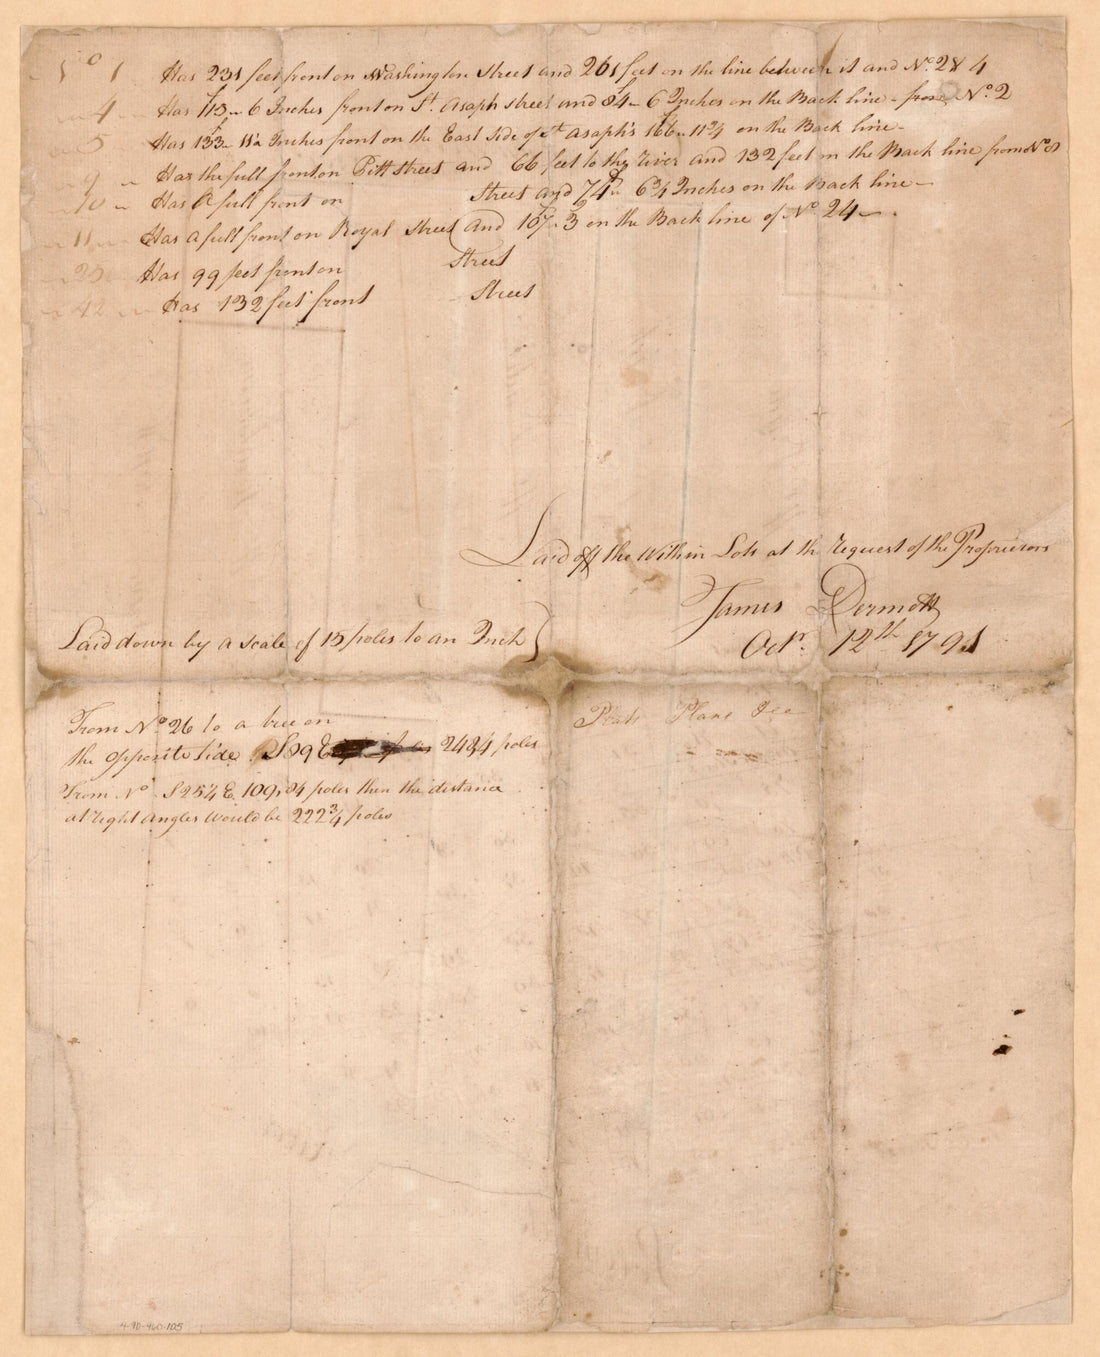 No 1 Has 231 feet front on Washington Street and 261 feet on the line between it and No. 2 & 4
4 Has 113 f 6 Inches front on St. Asaph street and 84 f 6 Inches on the Back line from No. 2
5 Has 133 f 11½ Inches front on the East Side of St Asaph's 166 f 11¾ on the Back line
9 Has the full front on Pitt street and 66 feet to the River and 132 feet on the Back line from No 8
10 Has A full front on Street and 74 f 6¾ Inches on the Back line
11 Has A full front on Royal Street and 107 f 3 on the Back line of No 24
25 Has 99 feet front on Street
42 Has 132 feet front Street
Laid off the Within Lots at the request of the Proprietors
James Dermott
Octr. 12th 1791
Laid down by a scale of 15 poles to an Inch
From No 26 to a tree on
the opposite side S 89 E 242¼ poles
From No S 25¼ E 109,84 poles then the distance
at right Angles would be 222¾ poles
Plats Plans &ca
4-90-460-105